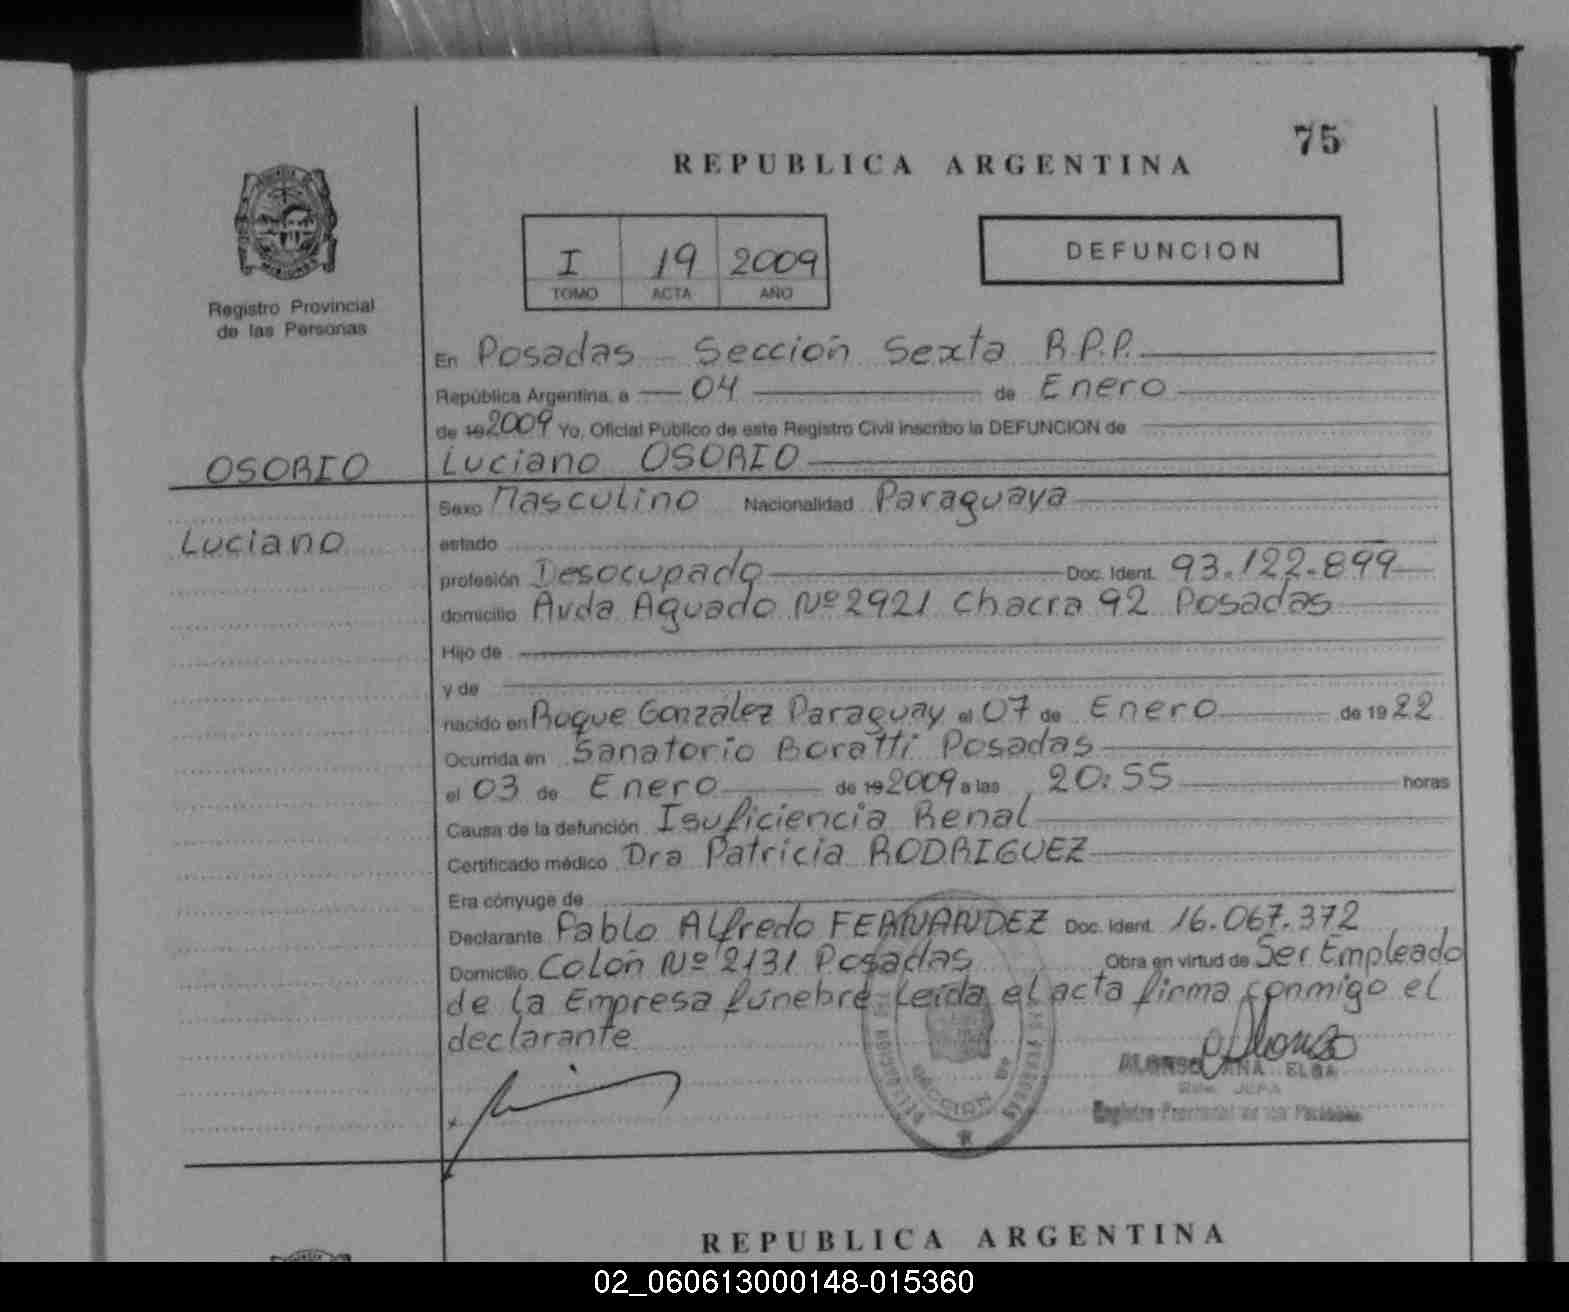 75
REPUBLICA ARGENTINA
I 19 2009
TOMO ACTA AÑO
DEFUNCION
Registro Provincial
de las Personas
En Posadas Sección Sexta R.P.P.
República Argentina, a 04 de Enero
de 19 2009 Yo, Oficial Público de este Registro Civil inscribo la DEFUNCION de
OSORIO Luciano OSORIO
Sexo Masculino Nacionalidad Paraguaya
Luciano estado
profesión Desocupado Doc. Ident. 93.122.899
domicilio Avda Aguado Nº 2921 Chacra 92 Posadas
Hijo de
y de
nacido en Roque González Paraguay el 07 de Enero de 19 22
Ocurrida en Sanatorio Boratti Posadas
el 03 de Enero de 19 2009 a las 20:55 horas
Causa de la defunción Isuficiencia Renal
Certificado médico Dra Patricia RODRIGUEZ
Era cónyuge de
Declarante Pablo Alfredo FERNANDEZ Doc. Ident. 16.067.372
Domicilio Colón Nº 2131 Posadas Obra en virtud de Ser Empleado
de la Empresa fúnebre. Leída el acta firma conmigo el
declarante
ALONSO ANA ELBA
JEFA
Registro Provincial de las Personas
REPUBLICA ARGENTINA
02_060613000148-015360